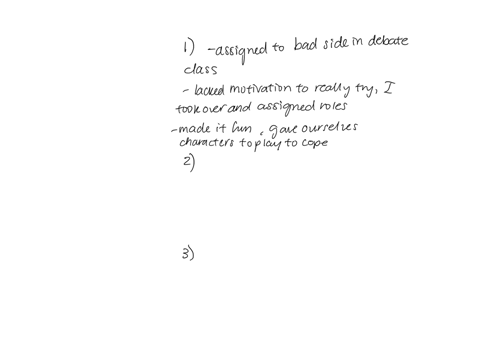 1) -assigned to bad side in debate
class
- lacked motivation to really try, I
took over and assigned roles
-made it fun, gave ourselves
characters to play to cope
2)
3)